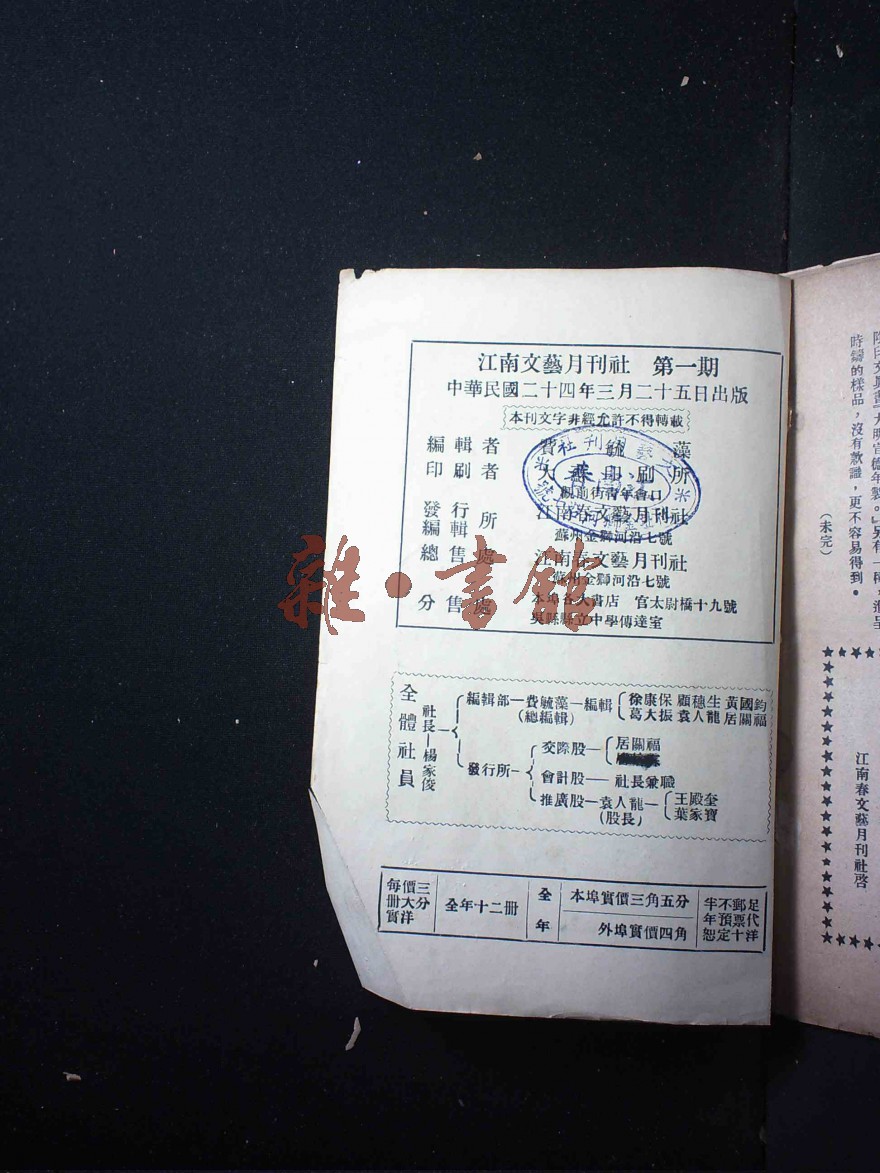 江南文藝月刊社　第一期
中華民國二十四年三月二十五日出版
本刊文字非經允許不得轉載
編輯者　費毓藻
印刷者　大蘇印刷所
觀前街青年會口
發行
編輯所　江南春文藝月刊社
蘇州金獅河沿七號
總售處　江南春文藝月刊社
蘇州金獅河沿七號
分售處　本埠各大書店　官太尉橋十九號
吳縣縣立中學傳達室
雜·書館
全體社員
社長—楊家俊
編輯部—費毓藻—編輯　徐康保　顧穗生　黃國鈞
(總編輯)　葛大振　袁人龍　居關福
發行所
交際股—居關福
會計股—社長兼職
推廣股—袁人龍—王殿奎
(股長)　葉家寶
每冊實價大洋三分
全年十二冊
全年
本埠實價三角五分
外埠實價四角
郵票代洋十足
半年不預定恕
時鑄的樣品，沒有款識，更不容易得到。
(未完)
江南春文藝月刊社啓